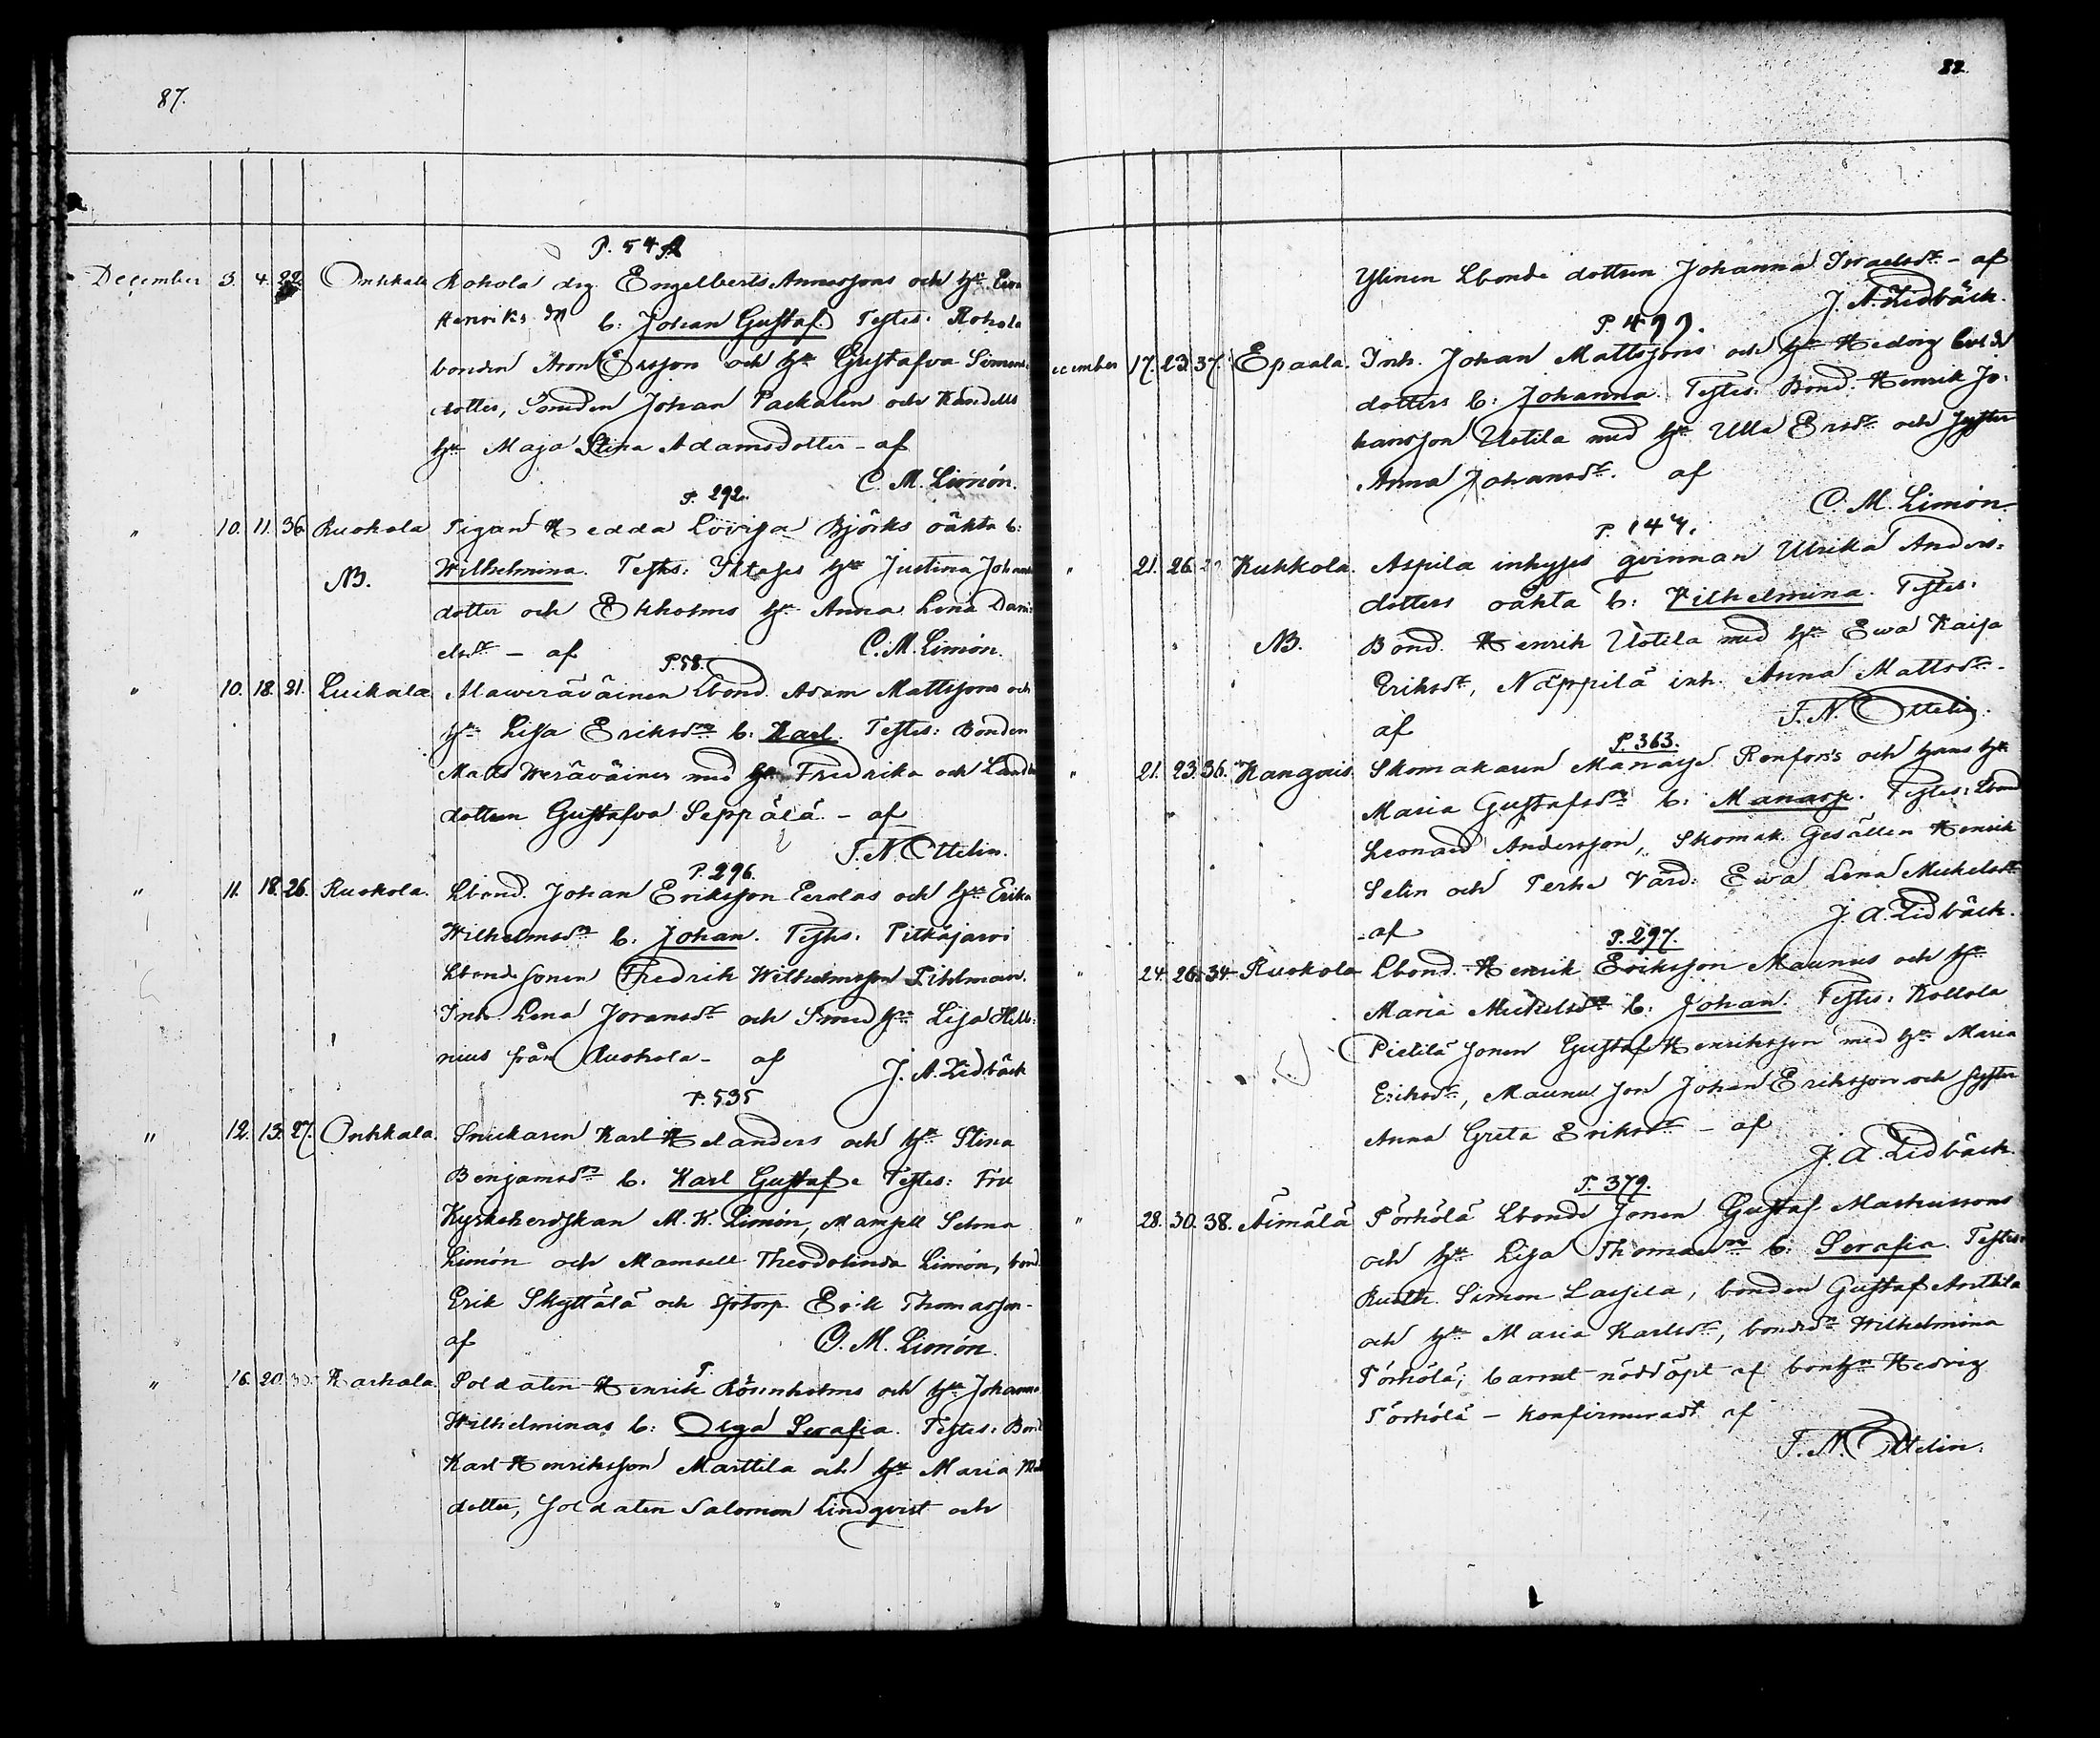 87.
P. 54
December 3. 4. 22 Onkkala Rohola drg. Engelberts Annassons och hu Eva
Henriks dr b: Johan Gustaf. Testes: Rohola
bonden Aron Ersson och hu Gustafva Simons
dotter, Smeden Johan Packalen och Kandells
hu Maja Stina Adamsdotter - af
C. M. Limón.
P. 292.
" 10. 11. 36 Ruokola Pigan Hedda Lovisa Björks oäkta b:
NB. Wilhelmina. Testes: hu Justina Johans
dotter och Ekholms hu Anna Lena Dani:
elsdr - af C. M. Limón.
P. 58.
" 10. 18. 21. Luikala Lbond. Adam Mattssons och
hu Lisa Eriksdrs b: Karl. Testes: Bonden
Matts Weräväinen med hu Fredrika och
dottren Gustafva Seppälä - af
T. N. Ottelin.
P. 296.
" 11. 18. 26. Ruokola. Lbond. Johan Eriksson Eerolas och hu Erika
Wilhelmsdrs b: Johan. Testes: Pitkäjarvi
Lbonde sonen Fredrik Wilhelmsson Pihlman.
Inh Lena Joransdr och Smed hu Lisa Hell:
nius från Ruokola - af J. A. Lidbäck
P. 535
" 12. 13. 27. Onkkala. Snickaren Karl Helanders och hu Stina
Benjamsdrs b: Karl Gustaf. Testes: Fru
Kyrkoherdskan M. K. Limón, Mamsell Selma
Limón och Mamsell Theodolinda Limón, bond.
Erik Skyttälä och Erik Thomasson -
af C. M. Limón.
P.
" 16. 20. Harhala. Soldaten Henrik Rönnholms och hu Johanna
Wilhelminas b: Olga Serafia. Testes: Bond
Karl Henriksson Marttila och hu Maria
dotter, Soldaten Salomon Lindqvist och
88
Ylinen Lbonde dottren Johanna Israelsdr - af
J. A. Lidbäck.
P. 499.
December 17. 23. 37. Epaala. Inh. Johan Mattssons och hu Hedvig
dotters b: Johanna. Testes: Bond. Henrik Jo:
hansson Uotila med hu Ulla Ersdr och syster
Anna Johansdr. af
C. M. Limón
P. 147.
" 21. 26. Kuhkola. Aspila inhyses qvinnan Ulrika Anders:
dotters oäkta b: Vilhelmina. Testes:
NB. Bond. Henrik Uotila med hu Ewa Kaisa
Eriksdr, Näppilä inh. Anna Mattsdr -
af T. N. Ottelin.
P. 363.
" 21. 23. 36. Kangais. Skomakaren Manasse Renfors's och hans hu
Maria Gustafsdrs b: Manasse. Testes: Lbond
Leonard Andersson, Skomak. Gesällen Henrik
Selin och Perhe Värd: Ewa Lena Mickelsdr
- af J. A. Lidbäck.
P. 297.
" 24. 26. 34. Ruokola Lbond. Henrik Eriksson Maunus och hu
Maria Mickelsdrs b: Johan. Testes: Kollola
Pietilä sonen Gustaf Henriksson med hu Maria
Eriksdr, Maunu son Johan Eriksson och syster
Anna Greta Eriksdr - af
J. A. Lidbäck.
P. 379.
" 28. 30. 38. Äimälä Pörhölä Lbonde sonen Gustaf Mathiassons
och hu Lisa Thomasdrs b: Serafia. Testes:
Rusth. Simon Lassila, bonden Gustaf Anttila
och hu Maria Karlsdr, bondedr Wilhelmina
Pörhölä; barnet nöddöpt af bonhu Hedvig
Pörhölä - konfirmeradt af
T. N. Ottelin.